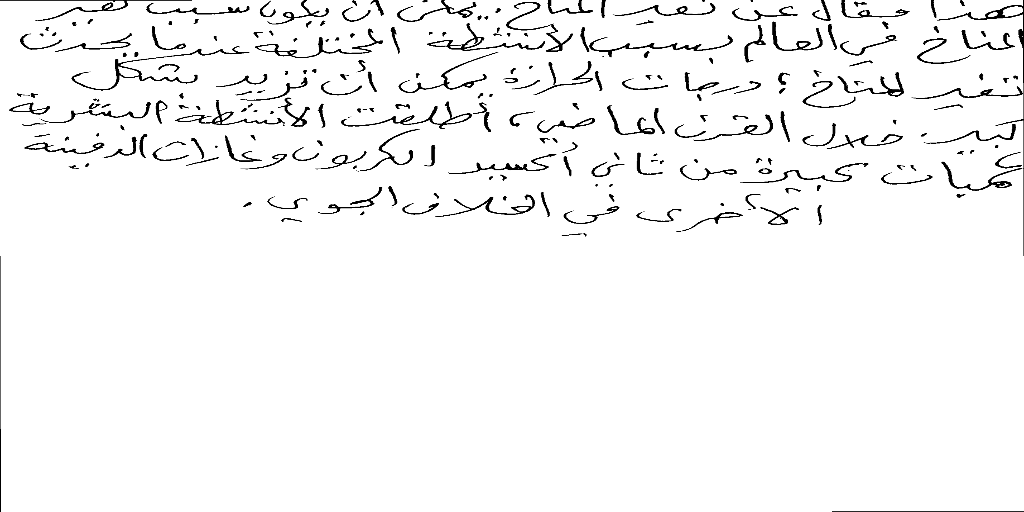 هذا مقال عن تغير المناخ. يمكن أن يكون سبب تغير
المناخ في العالم بسبب الأنشطة المختلفة عندما يحدث
تغير المناخ؛ درجات الحرارة يمكن أن تزيد بشكل
كبير. خلال القرن الماضي، أطلقت الأنشطة البشرية
كميات كبيرة من ثاني أكسيد الكربون وغازات الدفيئة
الأخرى في الغلاف الجوي.